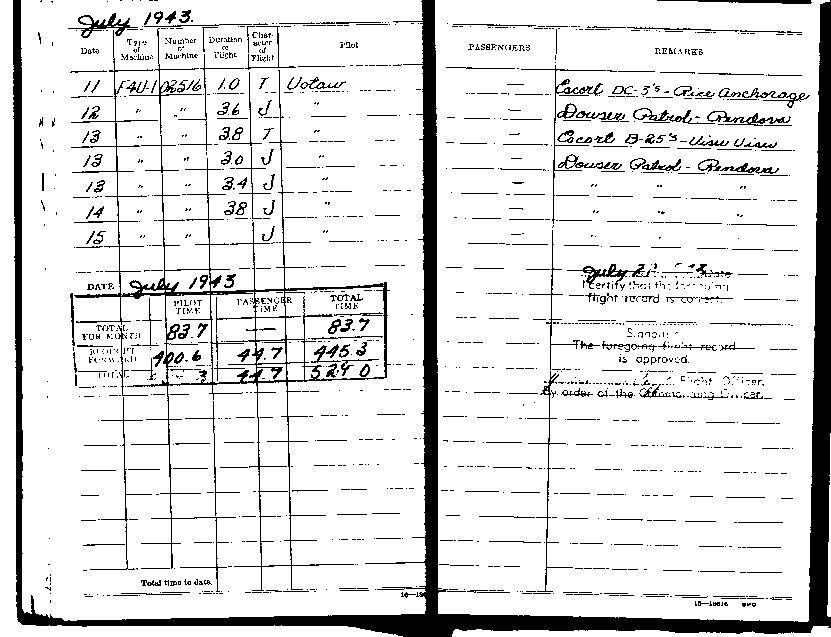 July 1943.
Date Type of Machine Number of Machine Duration of Flight Character of Flight Pilot PASSENGERS REMARKS
11 F4U-1 02516 1.0 T Votaw — Escort DC-3's - Rice Anchorage
12 " " 3.6 J " — Dowser Patrol - Rendova
13 " " 3.8 T " — Escort B-25's - Visu Visu
13 " " 3.0 J " — Dowser Patrol - Rendova
13 " " 3.4 J " — " " "
14 " " 3.8 J " — " " "
15 " " J " — " " "
DATE July 1943
PILOT TIME PASSENGER TIME TOTAL TIME
TOTAL FOR MONTH 83.7 — 83.7
BROUGHT FORWARD 400.6 44.7 445.3
TOTAL 44.7 529 0
July
I certify that the foregoing
flight record is correct.
The foregoing flight record
is approved.
Flight Officer.
By order of the Commanding Officer.
Total time to date,